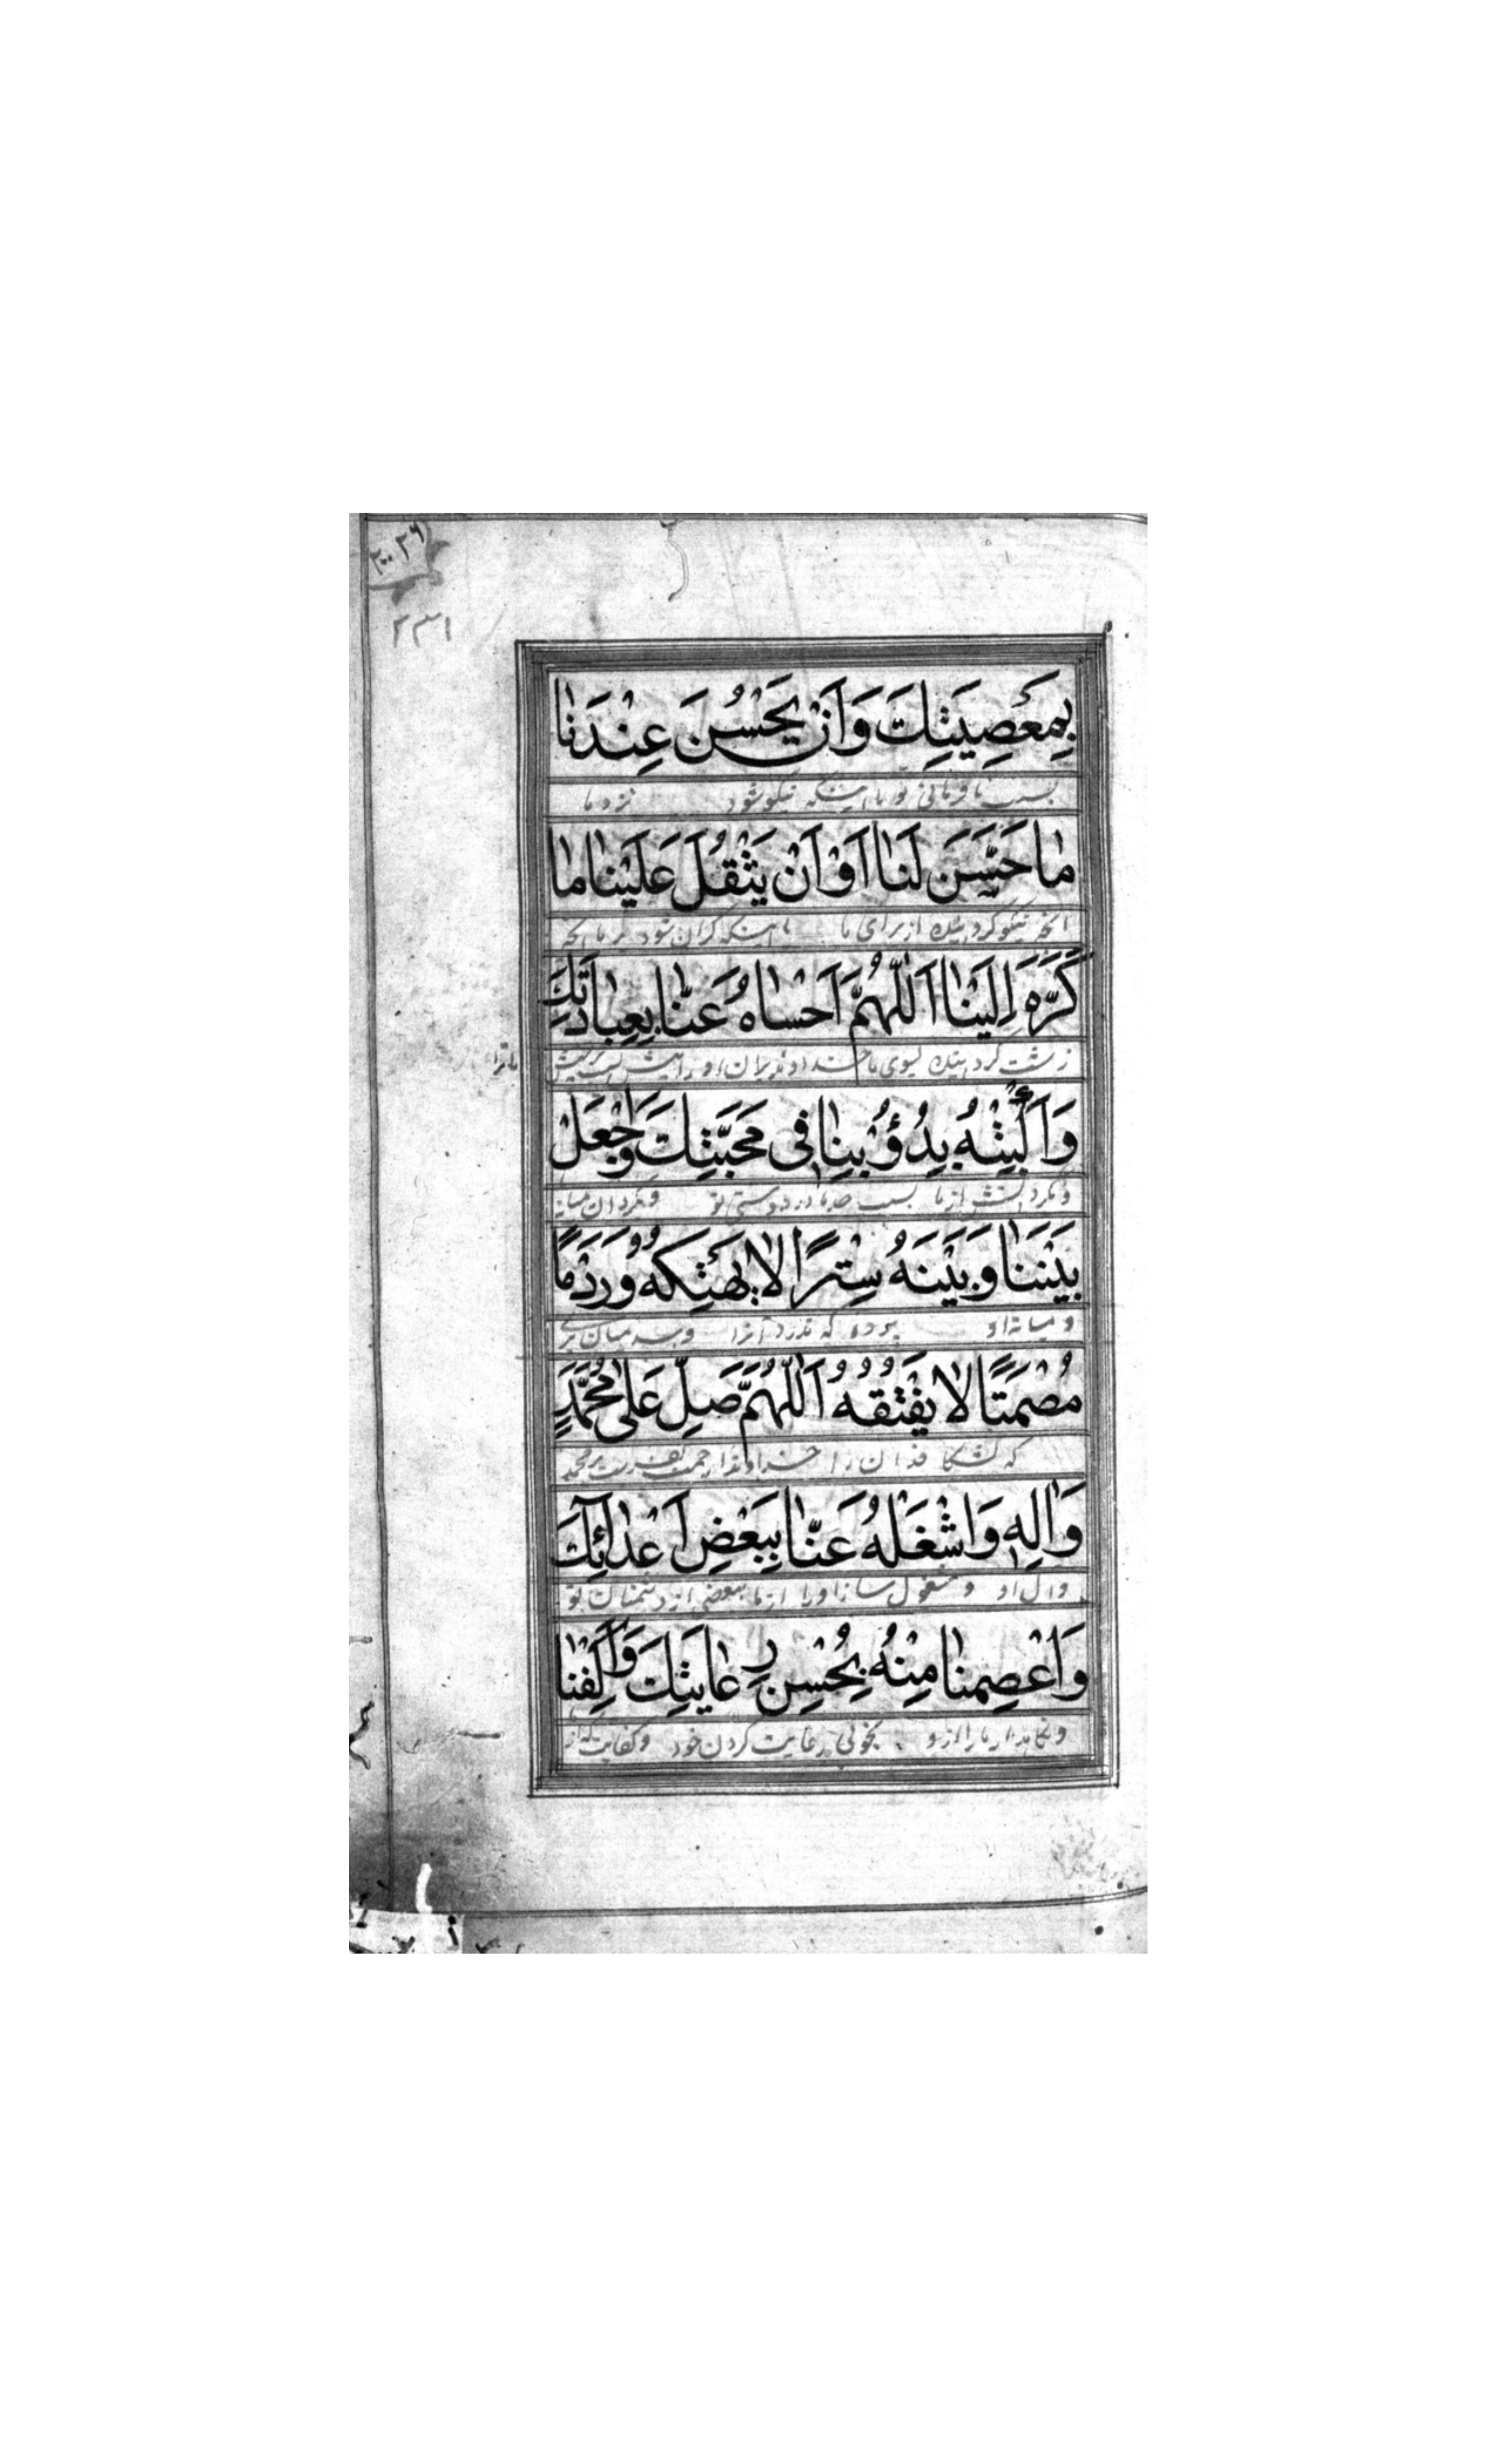 ٢٠٠٢٦
٢٣١
بِمَعْصِيَتِكَ وَاَنْ يَحْسُنَ عِنْدَنا
بسبب نافرمانی تو یا اینکه نیکو شود نزد ما
ما حَسَّنَ لَنا اَوْ اَنْ يَثْقُلَ عَلَيْنا ما
آنچه نیکو گردانیده از برای ما یا اینکه گران شود بر ما آنچه
كَرَّهَ اِلَيْنا اَللّٰهُمَّ اَخْسَاهُ عَنّا بِعِبادَتِكَ
زشت گردانیده بسوی ما خداوندا بران او را
ما ترا
وَاَكْبِتْهُ بِدُؤُبِنا فى مَحَبَّتِكَ وَاجْعَلْ
از ما بسبب جد ما در دوستی تو و بگردان میانه
بَيْنَنا وَبَيْنَهُ سِتْرًا لا يَهْتِكُهُ وَرَدْمًا
و میانه او پرده که ندرد آنرا
مُصْمَتًا لا يَفْتُقُهُ اَللّٰهُمَّ صَلِّ عَلى مُحَمَّدٍ
که نشکافد آن را خداوندا رحمت بفرست بر محمد
وَاٰلِهِ وَاشْغَلْهُ عَنّا بِبَعْضِ اَعْدائِكَ
و آل او و مشغول ساز او را از ما ببعضی از دشمنان تو
وَاَعْصِمْنا مِنْهُ بِحُسْنِ رِعايَتِكَ وَاكْفِنا
و نگاهدار ما را از او بخوبی رعایت کردن خود و کفایت